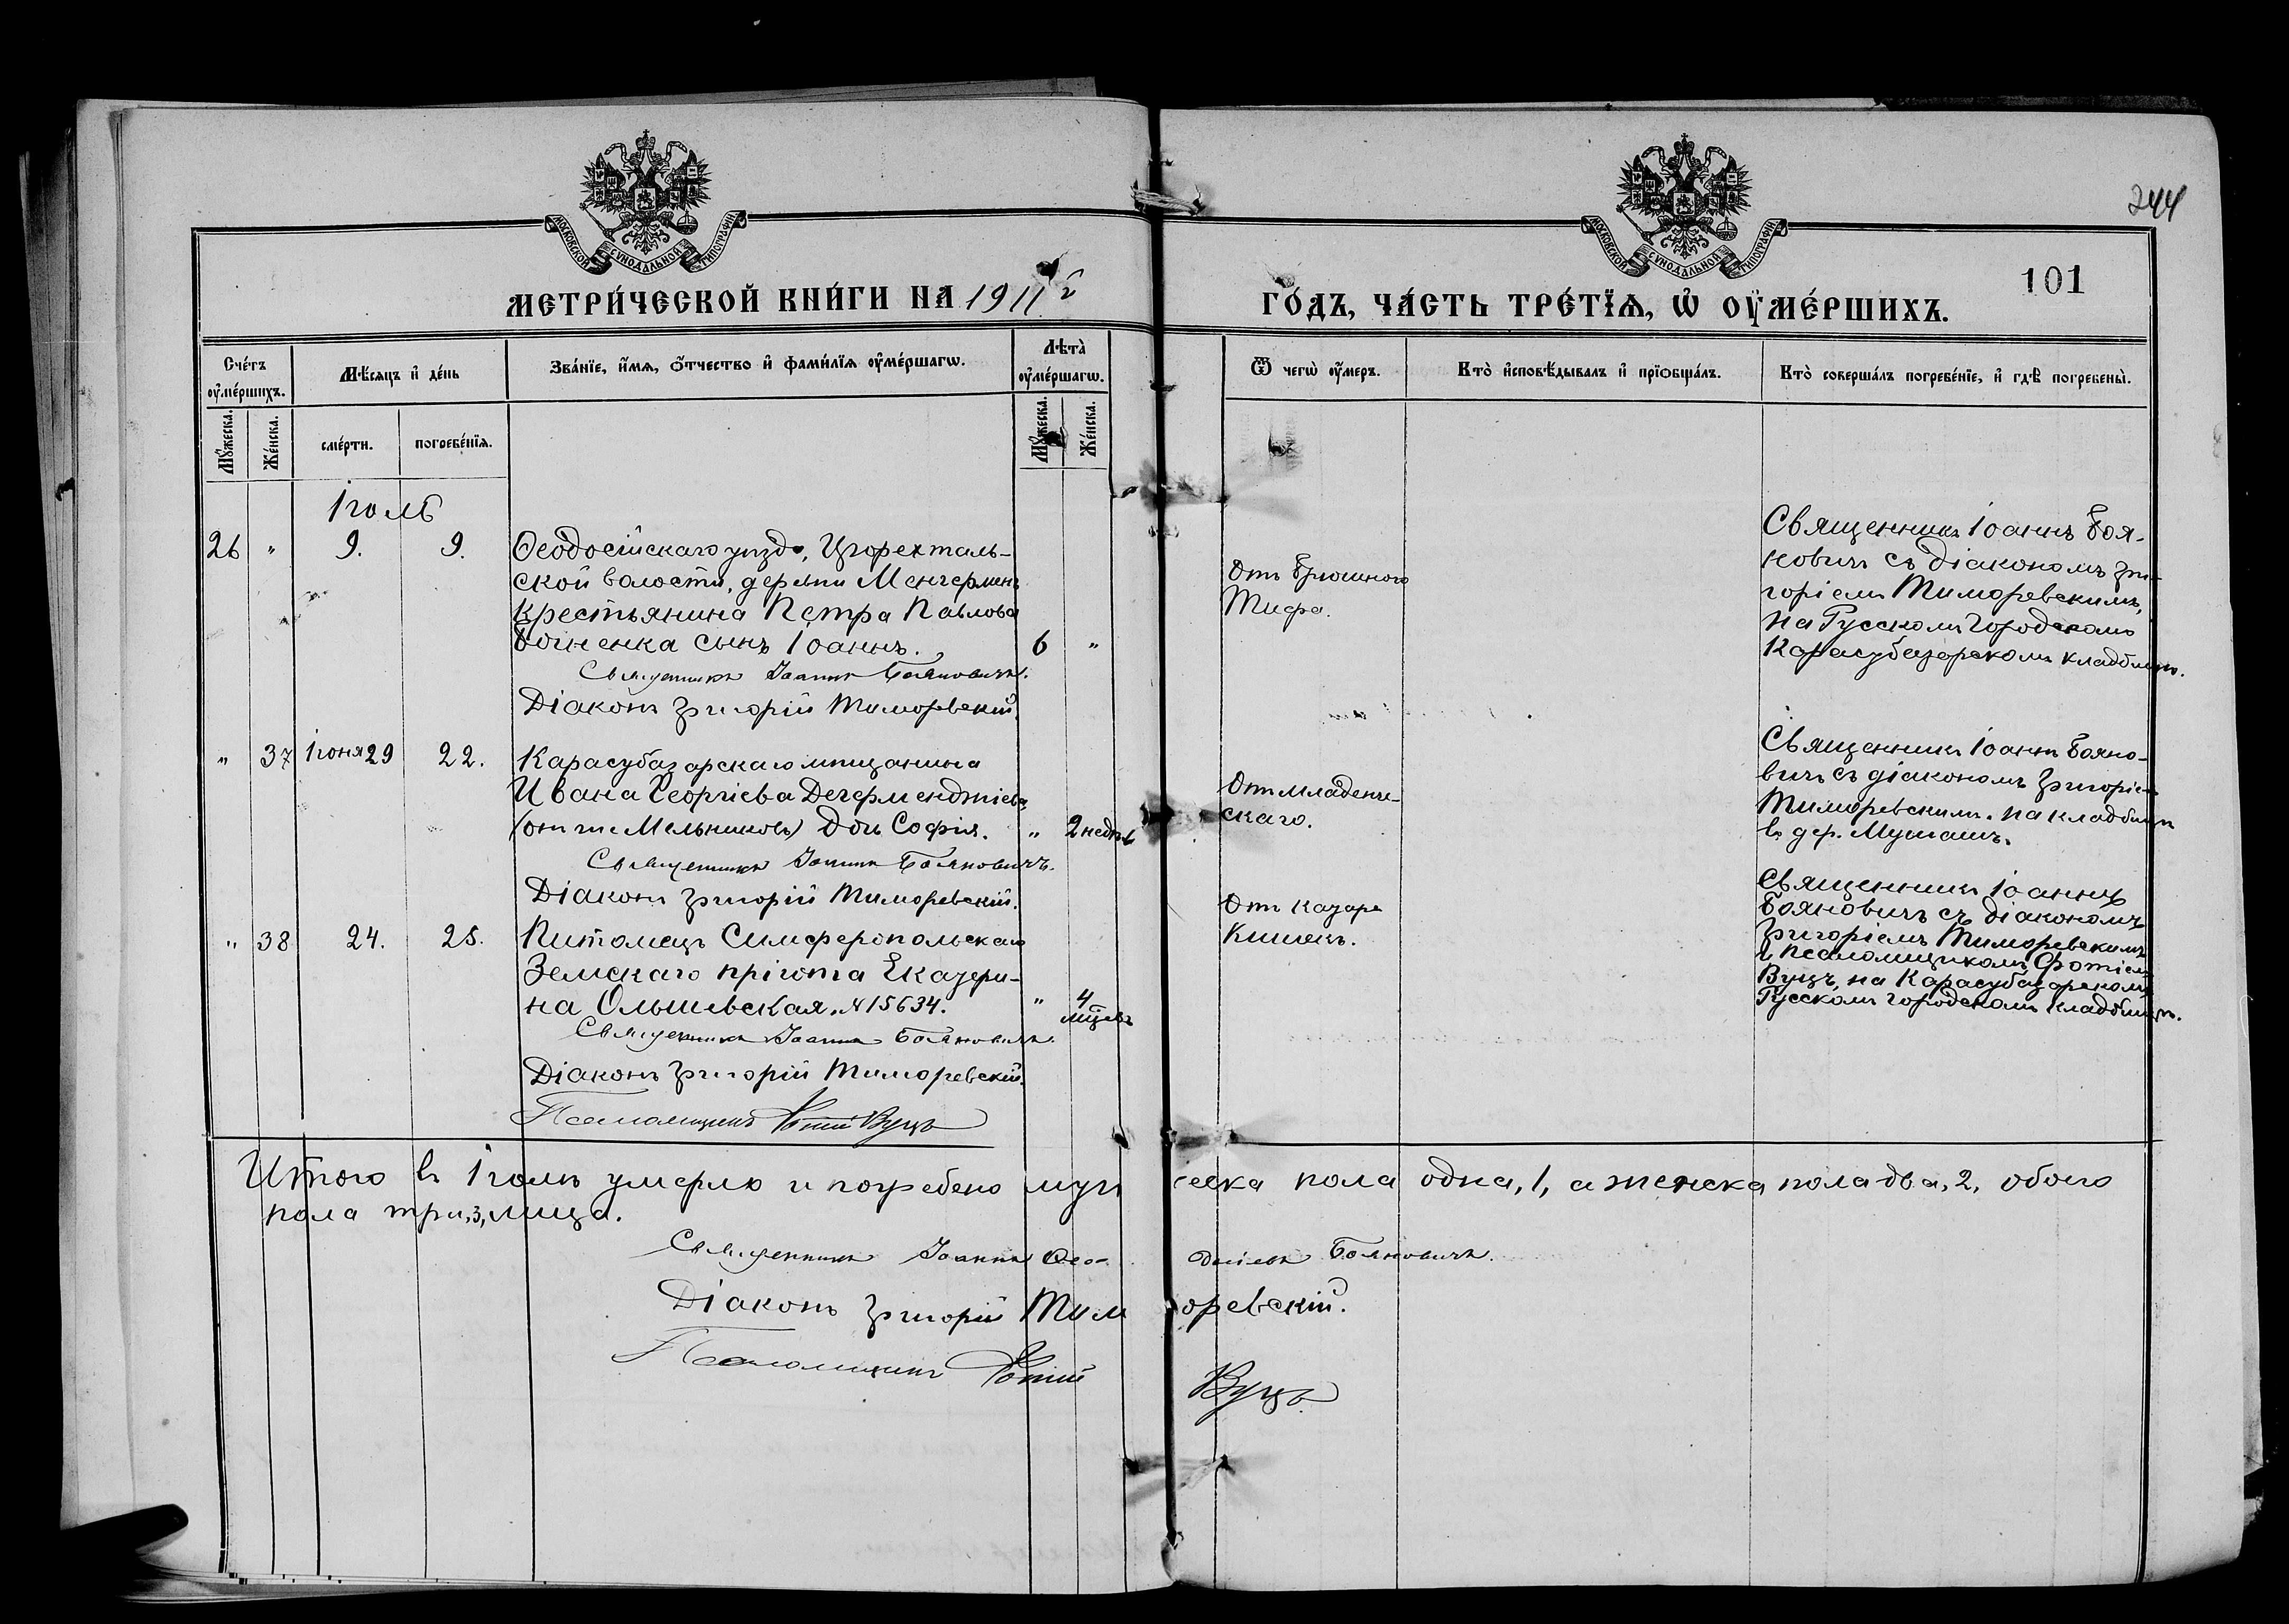 244
МОСКОВСКОЙ СѴНОДАЛЬНОЙ ТИПОГРАФІИ
МОСКОВСКОЙ СѴНОДАЛЬНОЙ ТИПОГРАФІИ
101
МЕТРИ́ЧЕСКОЙ КНИ́ГИ НА 1911й
ГО́ДЪ, ЧА́СТЬ ТРЕ́ТІѦ, Ѡ҆ ОУ҆МЕ́РШИХЪ.
Сче́тъ оу҆ме́ршихъ.
Мѣ́сяцъ и҆ де́нь
Зва́нїе, и҆́мѧ, ѻ҆́тчество и҆ фами́лїѧ оу҆ме́ршагѡ.
Лѣта̀ оу҆ме́ршагѡ.
Ѿ чегѡ̀ оу҆́меръ.
Кто̀ и҆сповѣ́дывалъ и҆ прїѡбща́лъ.
Кто̀ соверша́лъ погребе́нїе, и҆ гдѣ̀ погребены̀.
Мꙋ́жеска.
Же́нска.
сме́рти.
погребе́нїѧ.
Мꙋ́жеска.
Же́нска.
Іюль
26 " 9. 9.
Ѳеодосійскаго уѣзда, Цюрехталь-
ской волости, деревни
крестьянина Петра Павлова
сынъ Іоаннъ. 6 "
Священникъ Іоаннъ Бояновичъ.
Діаконъ Григорій Тиморевскій.
Отъ брюшного
Тифа.
Священникъ Іоаннъ Боя-
новичъ съ діакономъ Гри-
горіемъ Тиморевскимъ,
на Русскомъ Городскомъ
Карасубазарскомъ кладбищѣ.
" 37 Іюня 29 22.
Карасубазарскаго мѣщанина
Ивана Георгіева Дегерменджіева
(онъ же Мельниковъ) дочь Софія. " 2 недѣль
Священникъ Іоаннъ Бояновичъ.
Діаконъ Григорій Тиморевскій.
Отъ младенче-
скаго.
Священникъ Іоаннъ Бояно-
вичъ съ діакономъ Григоріемъ
Тиморевскимъ. на кладбищѣ
въ дер.
" 38 24. 25.
Питомецъ Симферопольскаго
Земскаго пріюта Екатери-
на Ольшевская. № 15634. " 4 мѣсяц.
Священникъ Іоаннъ Бояновичъ.
Діаконъ Григорій Тиморевскій.
Псаломщикъ Фотій Вуцъ
Отъ катара
Кишекъ.
Священникъ Іоаннъ
Бояновичъ съ діакономъ
Григоріемъ Тиморевскимъ
и псаломщикомъ Фотіемъ
Вуцъ, на Карасубазарскомъ
Русскомъ городскомъ кладбищѣ.
Итого въ Іюлѣ умерло и погребено мужеска пола одна, 1, а женска пола два, 2, обоего
пола три, 3, лица.
Священникъ Іоаннъ Бояновичъ.
Діаконъ Григорій Тиморевскій.
Псаломщикъ Фотій Вуцъ.